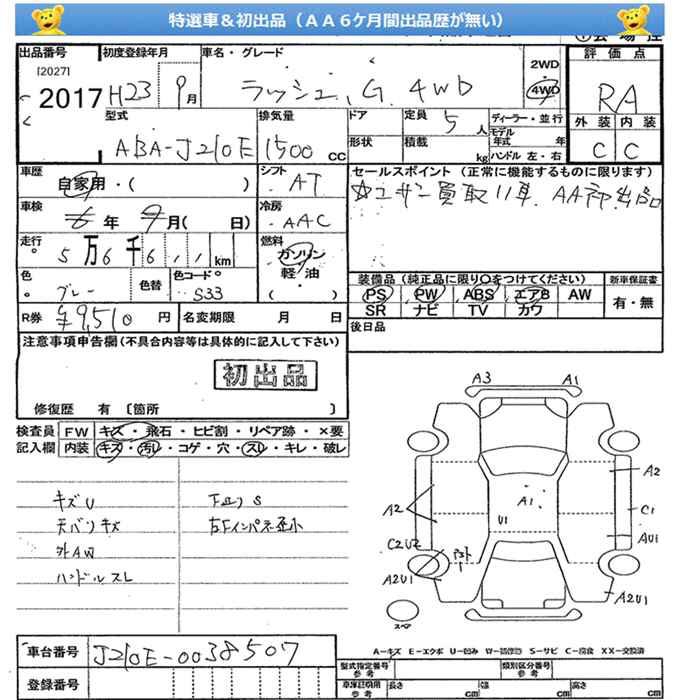 特選車&初出品(AA6ケ月間出品歴が無い)
出品番号
[2027]
2017
初度登録年月
H23 9月
車名・グレード
ラッシュ、G 4WD
2WD
・
4WD
評価点
RA
外装 内装
C C
型式
ABA-J210E
排気量
1500 cc
ドア
形状
定員
5人
積載
kg
ディーラー・並行
モデル
年式 年
ハンドル 左・右
車歴
自家用・( )
シフト
AT
セールスポイント(正常に機能するものに限ります)
☆ユーザー買取り車 AA初出品
車検
6年 9月( 日)
冷房
AAC
走行
5万6千6 km
燃料
ガソリン
軽・油
( )
色
グレー
色替
色コードNo.
S33
装備品(純正品に限り〇をつけてください)
PS PW ABS エアB AW
SR ナビ TV カワ
新車保証書
有・無
R券 ¥9,510 円
名変期限 月 日
後日品
注意事項申告欄(不具合内容等は具体的に記入して下さい)
初出品
修復歴 有 [箇所 ]
検査員
記入欄
FW キズ・飛石・ヒビ割・リペア跡・×要
内装 キズ・汚レ・コゲ・穴・スレ・キレ・破レ
キズU
天バリキズ
外AW
ハンドルスレ
下廻りS
左Fインパネ歪小
A3 A1
A2
A1
U1
A2
C1
AU1
C2U2
A2U1
A2U1
スペア
A-キズ E-エクボ U-凹み W-補修跡 S-サビ C-腐食 XX-交換済
車台番号 J210E-0038507
登録番号
型式指定番号
参考
類別区分番号
参考
車庫証明用
参考
長さ cm
幅 cm
高さ cm